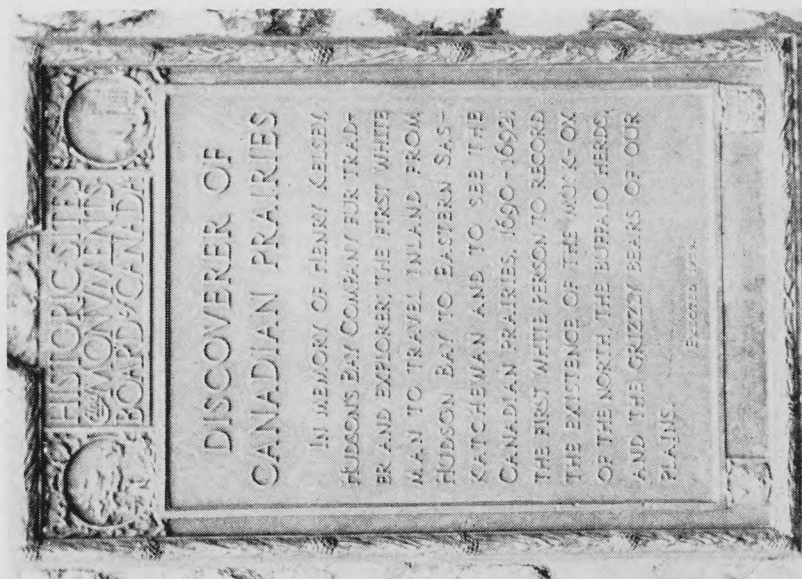 HISTORIC SITES
AND MONVMENTS
BOARD OF CANADA
DISCOVERER OF
CANADIAN PRAIRIES
IN MEMORY OF HENRY KELSEY,
HUDSON'S BAY COMPANY FUR TRAD-
ER AND EXPLORER; THE FIRST WHITE
MAN TO TRAVEL INLAND FROM
HUDSON BAY TO EASTERN SAS-
KATCHEWAN AND TO SEE THE
CANADIAN PRAIRIES, 1690-1692;
THE FIRST WHITE PERSON TO RECORD
THE EXISTENCE OF THE MUSK-OX
OF THE NORTH, THE BUFFALO HERDS,
AND THE GRIZZLY BEARS OF OUR
PLAINS.
ERECTED